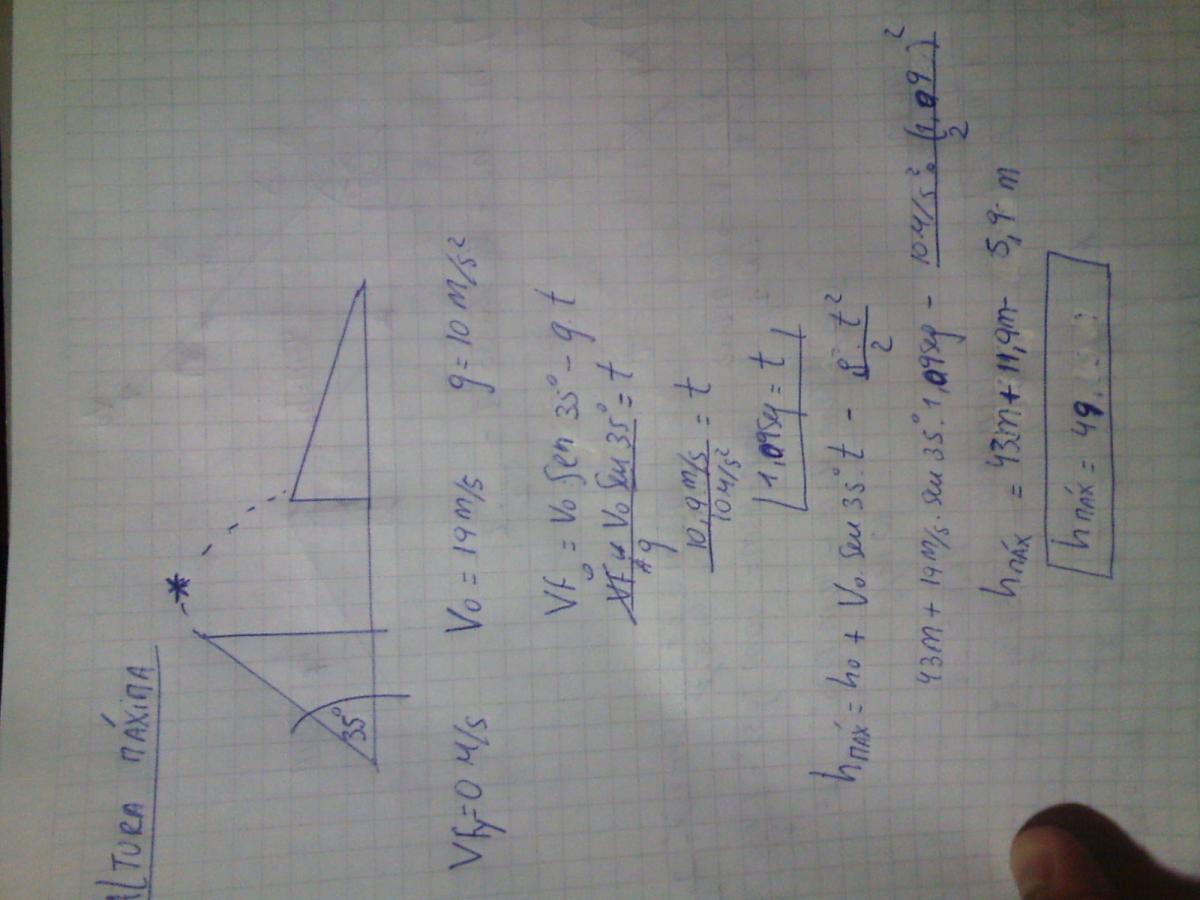 ALTURA MÁXIMA
35°
Vfy=0 M/s   V0 = 19 M/s   g = 10 M/s²
Vf = V0 Sen 35° - g.t
0
Vf V0 Sen 35° = t
g
10,9 M/s = t
10 M/s²
1,09 Seg = t
hMÁX = h0 + V0. Sen 35°.t - g.t²
2
43M + 19 M/s. Sen 35°. 1,09 Seg - 10 M/s². (1,09)²
2
hMÁX = 43M + 11,9M - 5,9 M
hMÁX = 49